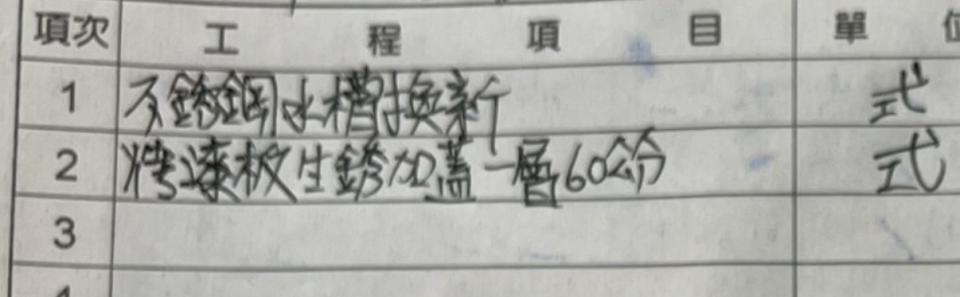 項次 工程項目 單位
1 不銹鋼水槽換新 式
2 烤漆板生銹加蓋一層60公分 式
3